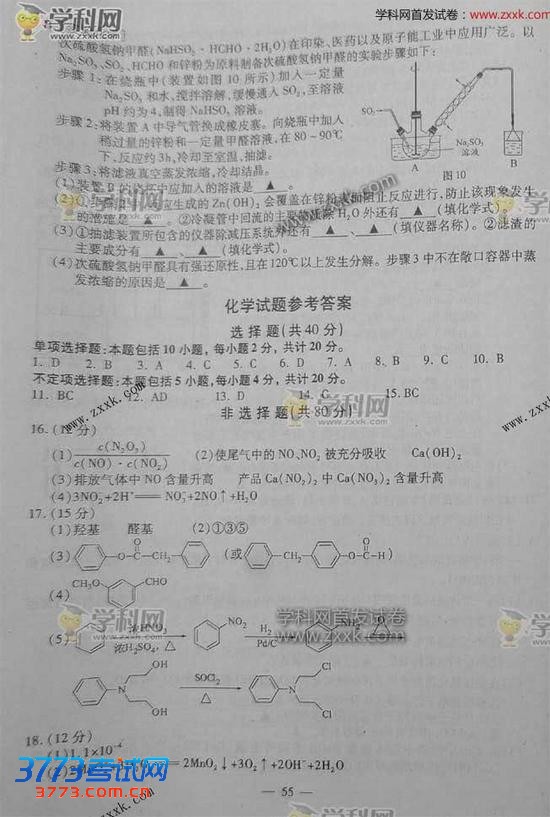 学科网首发试卷：www.zxxk.com
次硫酸氢钠甲醛(NaHSO₂·HCHO·2H₂O)在印染、医药以及原子能工业中应用广泛。以
Na₂SO₃、SO₂、HCHO 和锌粉为原料制备次硫酸氢钠甲醛的实验步骤如下：
步骤 1：在烧瓶中(装置如图 10 所示)加入一定量
Na₂SO₃ 和水,搅拌溶解,缓慢通入 SO₂,至溶液
pH 约为 4,制得 NaHSO₃ 溶液。
步骤 2：将装置 A 中导气管换成橡皮塞。向烧瓶中加入
稍过量的锌粉和一定量甲醛溶液,在 80～90℃
下,反应约 3h,冷却至室温,抽滤。
步骤 3：将滤液真空蒸发浓缩,冷却结晶。
SO₂
Na₂SO₃
溶液
A
B
图 10
(1)装置 B 的烧杯中应加入的溶液是 ▲ 。
(2)① 生成的 Zn(OH)₂ 会覆盖在锌粉表面阻止反应进行,防止该现象发生
的措施是 ▲ 。②冷凝管中回流的主要物质除 H₂O 外还有 ▲ (填化学式)。
(3)①抽滤装置所包含的仪器除减压系统外还有 ▲ 、 ▲ (填仪器名称)。②滤渣的
主要成分有 ▲ 、 ▲ (填化学式)。
(4)次硫酸氢钠甲醛具有强还原性,且在 120℃以上发生分解。步骤 3 中不在敞口容器中蒸
发浓缩的原因是 ▲ 。
化学试题参考答案
选择题(共 40 分)
单项选择题：本题包括 10 小题，每小题 2 分，共计 20 分。
1. D 2. B 3. A 4. C 5. D 6. A 7. B 8. B 9. C 10. B
不定项选择题：本题包括 5 小题，每小题 4 分，共计 20 分。
11. BC 12. AD 13. D 14. C 15. BC
非选择题(共 80 分)
16. (12 分)
(1) c(N₂O₃) / c(NO)·c(NO₂) (2)使尾气中的 NO、NO₂ 被充分吸收 Ca(OH)₂
(3)排放气体中 NO 含量升高 产品 Ca(NO₂)₂ 中 Ca(NO₃)₂ 含量升高
(4)3NO₂⁻+2H⁺══NO₃⁻+2NO↑+H₂O
17. (15 分)
(1)羟基 醛基 (2)①③⑤
(3) O C O CH₂ (或 CH₂ O—C—H)
(4) CH₃O CHO
(5) 浓HNO₃ 浓H₂SO₄,△ NO₂ H₂ Pd/C NH₂ O
OH N OH SOCl₂ △ Cl N Cl
18. (12 分)
(1)1.1×10⁻⁴
══2MnO₂↓+3O₂↑+2OH⁻+2H₂O
— 55 —
学科网
www.zxxk.com
学科网首发试卷
www.zxxk.com
3773考试网
3773.com.cn